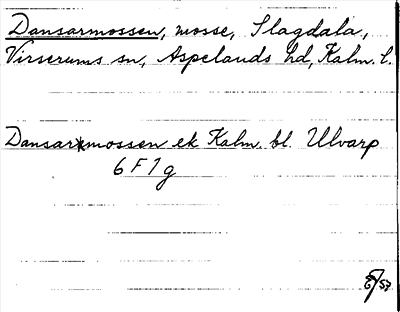 Dansarmossen, mosse, Slagdala,
Virserums sn, Aspelands hd, Kalm. l.
Dansarmossen ek Kalm. bl. Ulvarp
6 F 1 g